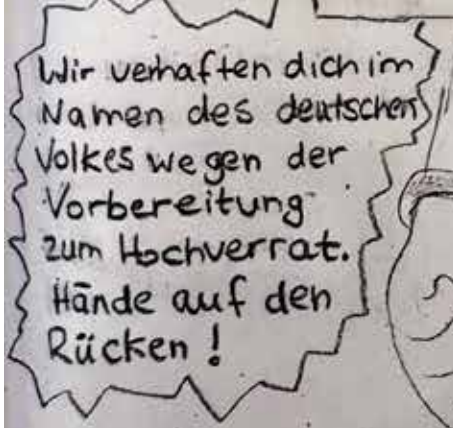 Wir verhaften dich im
Namen des deutschen
Volkes wegen der
Vorbereitung
zum Hochverrat.
Hände auf den
Rücken!